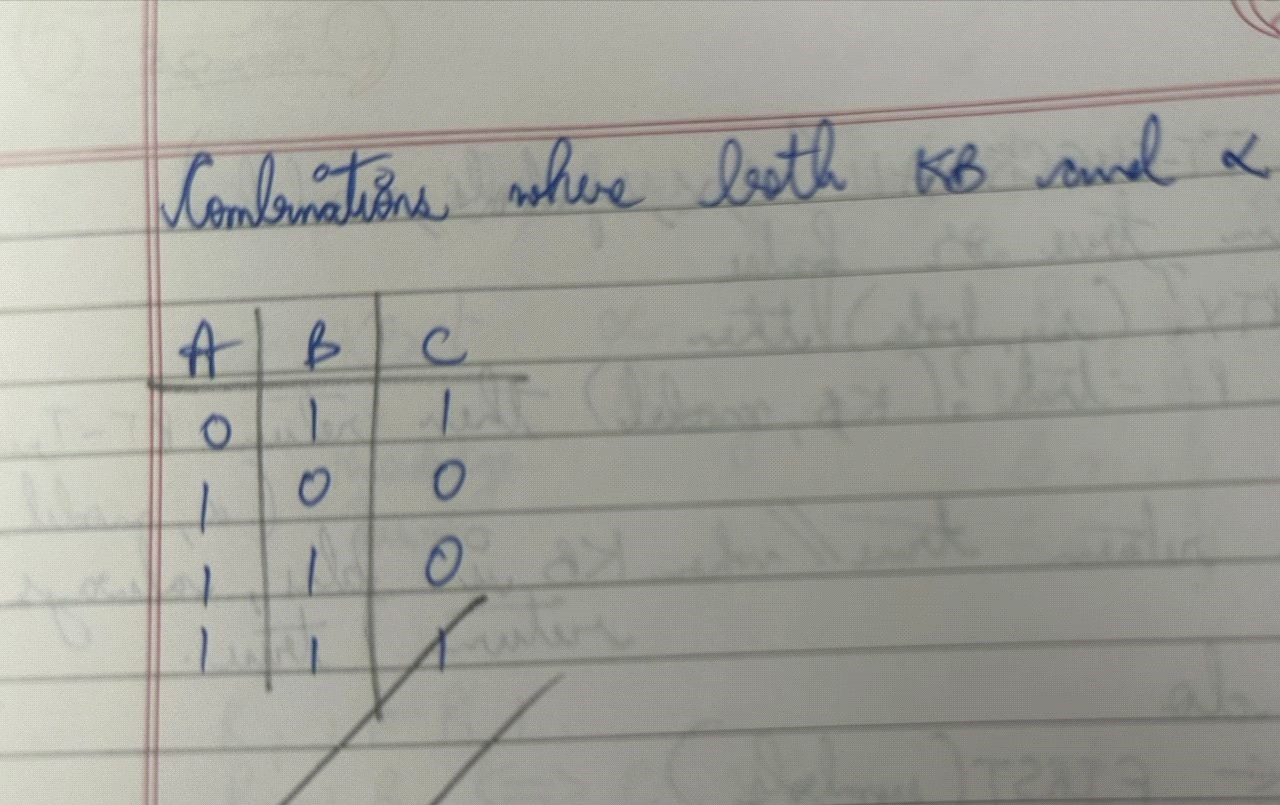 Combinations where both KB and α
A B C
0 1 1
1 0 0
1 1 0
1 1 1